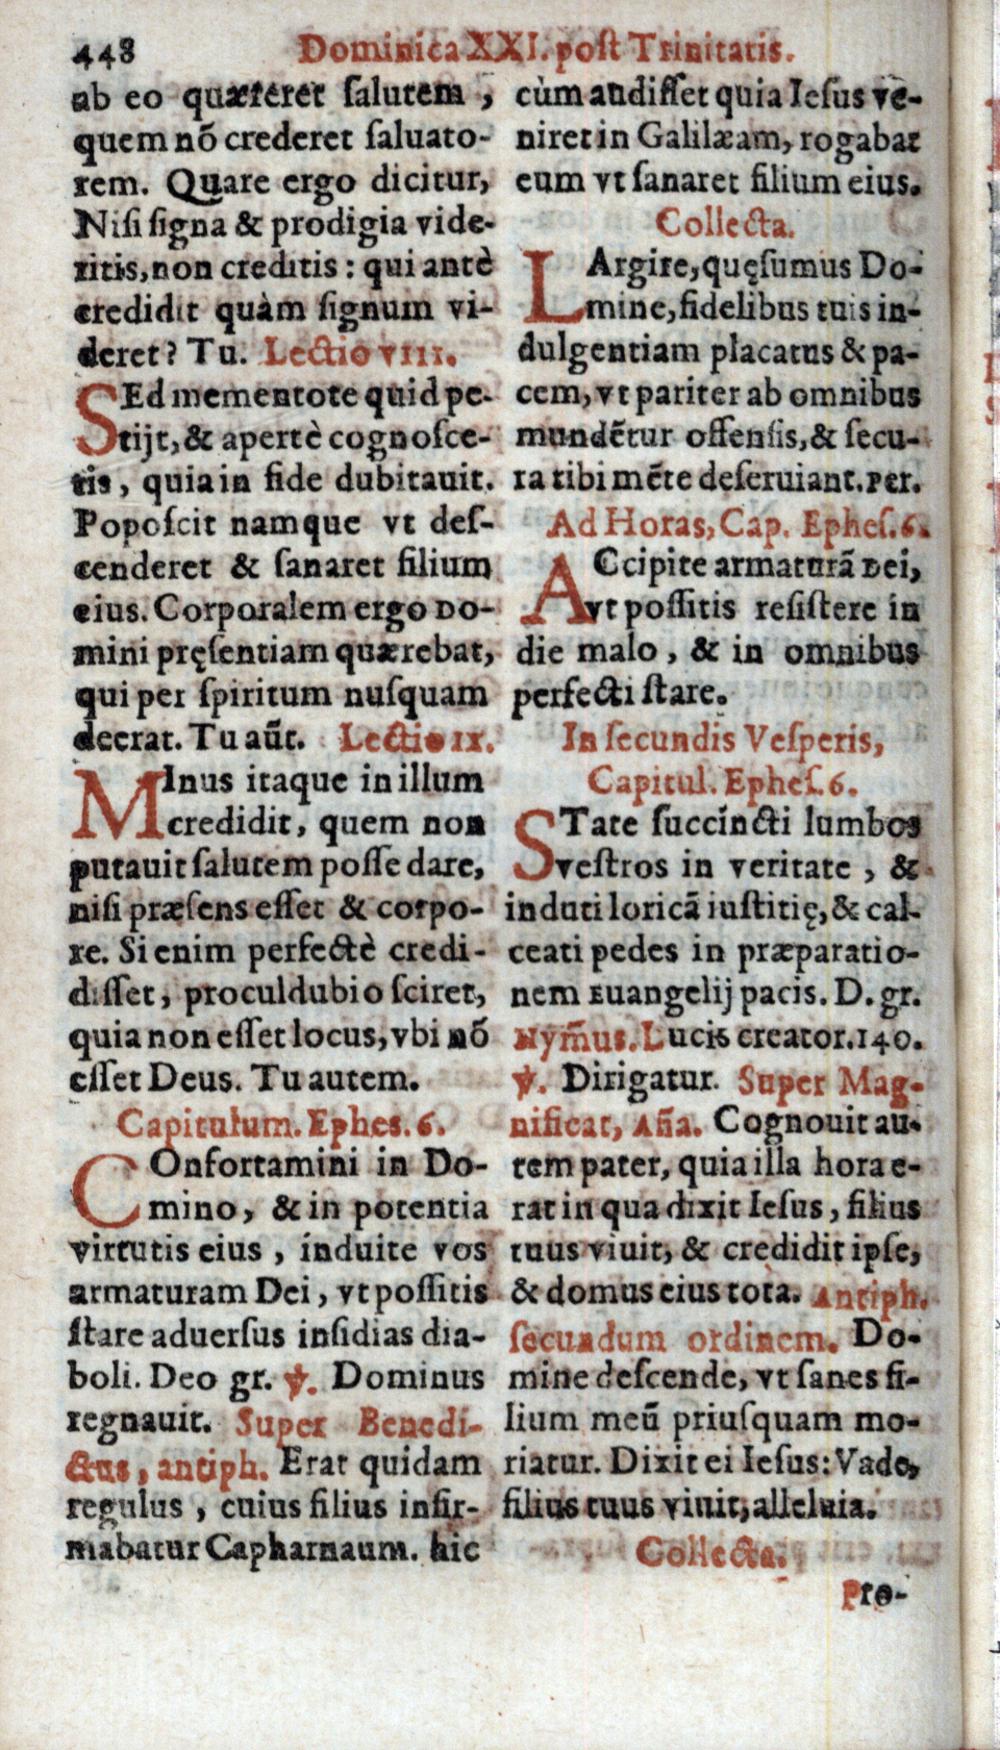 448 Dominica XXI. poſt Trinitatis.
ab eo quæreret ſalutem,
quem nõ crederet ſaluato-
rem. Quare ergo dicitur,
Niſi ſigna & prodigia vide-
ritis, non creditis : qui antè
credidit quàm ſignum vi-
deret? Tu. Lectio VIII.
SEd mementote quid pe-
tijt, & apertè cognoſce-
tis, quia in fide dubitauit.
Popoſcit namque vt deſ-
cenderet & ſanaret filium
eius. Corporalem ergo Do-
mini pręſentiam quærebat,
qui per ſpiritum nuſquam
deerat. Tu aũt. Lectio IX.
MInus itaque in illum
credidit, quem non
putauit ſalutem poſſe dare,
niſi præſens eſſet & corpo-
re. Si enim perfectè credi-
diſſet, proculdubio ſciret,
quia non eſſet locus, vbi nõ
eſſet Deus. Tu autem.
Capitulum. Ephes. 6.
COnfortamini in Do-
mino, & in potentia
virtutis eius, induite vos
armaturam Dei, vt poſſitis
ſtare aduerſus inſidias dia-
boli. Deo gr. ℣. Dominus
regnauit. Super Benedi-
ctus, antiph. Erat quidam
regulus, cuius filius infir-
mabatur Capharnaum. hic
cùm audiſſet quia Ieſus ve-
niret in Galilæam, rogabat
eum vt ſanaret filium eius.
Collecta.
LArgire, quęſumus Do-
mine, fidelibus tuis in-
dulgentiam placatus & pa-
cem, vt pariter ab omnibus
mundẽtur offenſis, & ſecu-
ra tibi mẽte deſeruiant. Per.
Ad Horas, Cap. Epheſ. 6.
ACcipite armaturã Dei,
vt poſſitis reſiſtere in
die malo, & in omnibus
perfecti ſtare.
In ſecundis Veſperis,
Capitul. Epheſ. 6.
STate ſuccincti lumbos
veſtros in veritate, &
induti loricã iuſtitię, & cal-
ceati pedes in præparatio-
nem Euangelij pacis. D. gr.
Hym̃us. Lucis creator. 140.
℣. Dirigatur. Super Mag-
nificat, Añа. Cognouit au-
tem pater, quia illa hora e-
rat in qua dixit Ieſus, filius
tuus viuit, & credidit ipſe,
& domus eius tota. Antiph.
ſecundum ordinem. Do-
mine deſcende, vt ſanes fi-
lium meũ priuſquam mo-
riatur. Dixit ei Ieſus: Vade,
filius tuus viuit, alleluia.
Collecta.
Pro-